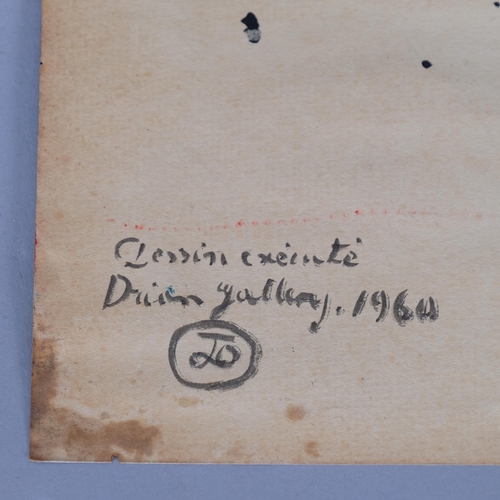 Dessin exécuté
Drian gallery. 1960